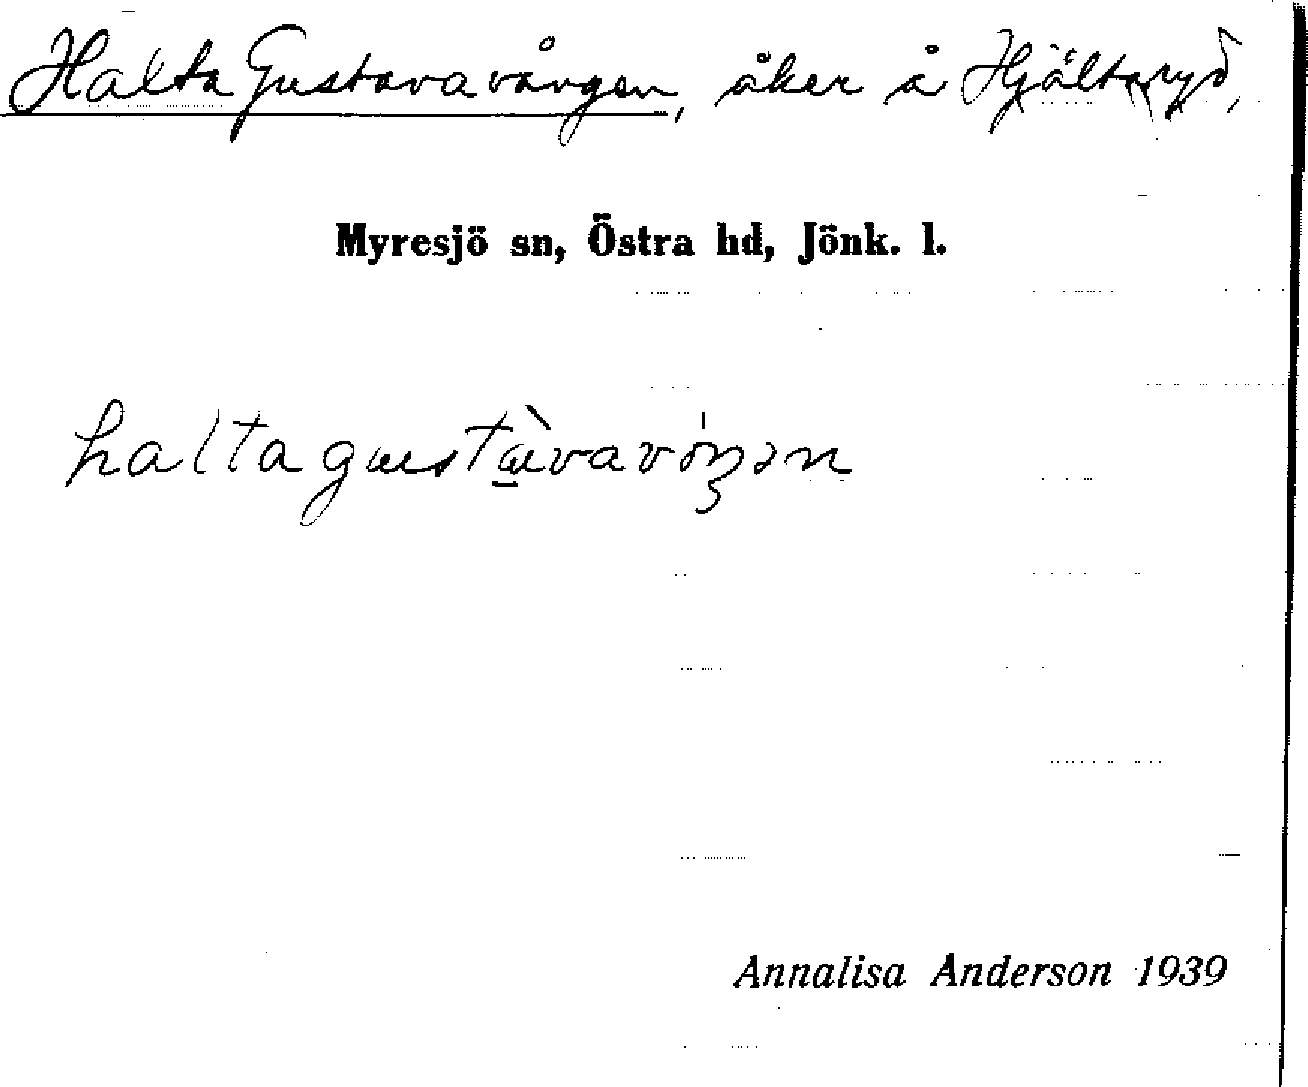 Halta Gustavavången, åker å Hjältaryd,
Myresjö sn, Östra hd, Jönk. l.
haltagustàvavóŋən
Annalisa Anderson 1939